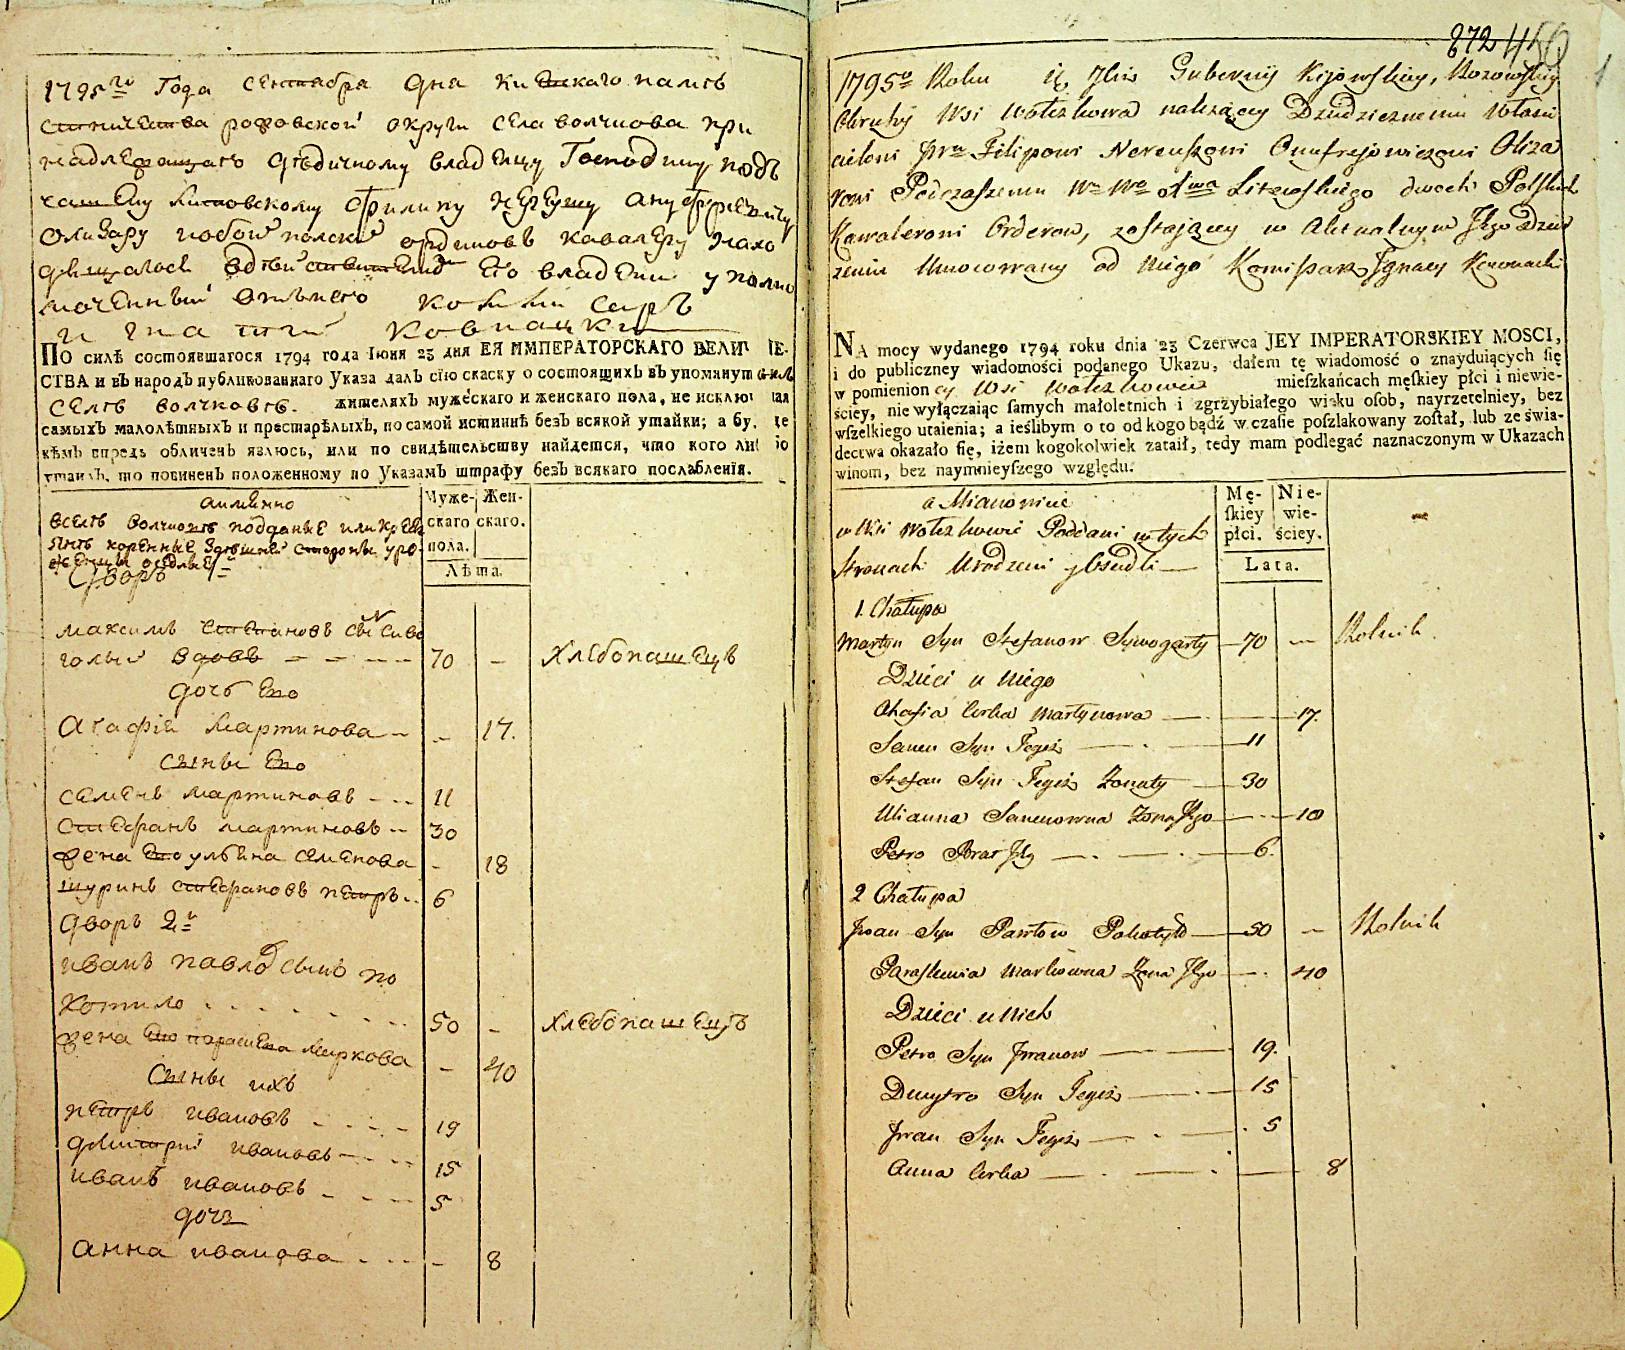 1795го Года сентября дня киевскаго намѣ
стничества роховской округи села волчкова при
надлежащаго дѣдичному владѣлцу Господину подъ
чашему Литовскому Филипу Нереушу Ануфреевичу
Олизару и обои полски ординовъ кавалеру
его владении уполно
моченный отънего комисаръ
игнатий Ковнацкий
По силѣ состоявшагося 1794 года Іюня 23 дня ЕЯ ИМПЕРАТОРСКАГО ВЕЛИЧЕ-
СТВА и въ народъ публикованнаго Указа далъ сію скаску о состоящихъ въ упомянутомъ
селѣ волчковѣ. жителяхъ мужескаго и женскаго пола, не исключая
самыхъ малолѣтныхъ и престарѣлыхъ, по самой истиннѣ безъ всякой утайки; а буде
кѣмъ впредь обличенъ явлюсь, или по свидѣтельству найдется, что кого либо
утаилъ, то повиненъ положенному по Указамъ штрафу безъ всякаго послабленія.
аимянно
вселѣ волчковѣ подданые или крестя
яне коренные здѣшней стороны уро
женцы оседлые
Дворъ 1й
Муже-скаго пола. Жен-скаго.
Лѣта.
максимъ степановъ сынъ сиво
голый вдовъ 70 – хлебопашецъ
дочь Его
Агафія Мартинова – 17.
Сыны Его
семенъ мартиновъ 11
Стефанъ мартиновъ 30
жена Его ульяна семенова – 18
шуринъ стефановъ петръ 6
дворъ 2й
иванъ павловъ сынъ по
котило 50 – хлебопашецъ
жена Его параскева маркова – 40
Сыны ихъ
петръ ивановъ 19
дмитрий ивановъ 15
иванъ ивановъ 5
дочь
анна иванова – 8
872
456
1795o Roku Gubernij Kijowskiey, Rozowskiey
Okruhy Wsi Wołczkowa należącey Dziedzicznemu Włości
cielowi Filipowi Nereuszowi Onufrejowiczowi Oliza
rowi Podczaszemu Litewskiego dwoch Polskich
Kawalerowi Orderow, zostającey w Aktualnym Jego Dzier
żeniu Umocowany od Niego Komisarz Ignacy Kownacki
NA mocy wydanego 1794 roku dnia 23 Czerwca JEY IMPERATORSKIEY MOSCI,
i do publiczney wiadomości podanego Ukazu, dałem tę wiadomość o znayduiących się
w pomienioney Wsi Wołczkowie mieszkańcach męskiey płci i niewie-
ściey, nie wyłączaiąc samych małoletnich i zgrzybiałego wieku osob, nayrzetelniey, bez
wszelkiego utaienia; a ieślibym o to od kogo bądź w czasie poszlakowany został, lub ze świa-
dectwa okazało się, iżem kogokolwiek zataił, tedy mam podlegać naznaczonym w Ukazach
winom, bez naymnieyszego względu.
a Mianowicie
w Wsi Wołczkowie Poddani w tych
Stronach Urodzeni y Osiedli
Mę-skiey płci. Nie-wie-ściey.
Lata.
1. Chałupa
Martyn Syn Stefanow Sywogorły 70 – Rolnik.
Dzieci u Niego
Ahafia Corka Martynowa 17.
Semen Syn Tegoż 11
Stefan Syn Tegoż Żonaty 30
Ulianna Semenowna Żona Jego 18
Petro Brat Jey 6.
2 Chałupa
Jwan Syn Pawłow Pokotyło 50 – Rolnik
Paraskewia Markowna Żona Jego 40
Dzieci u Nich
Petro Syn Jwanow 19.
Dmytro Syn Tegoż 15
Jwan Syn Tegoż 5
Anna Corka 8